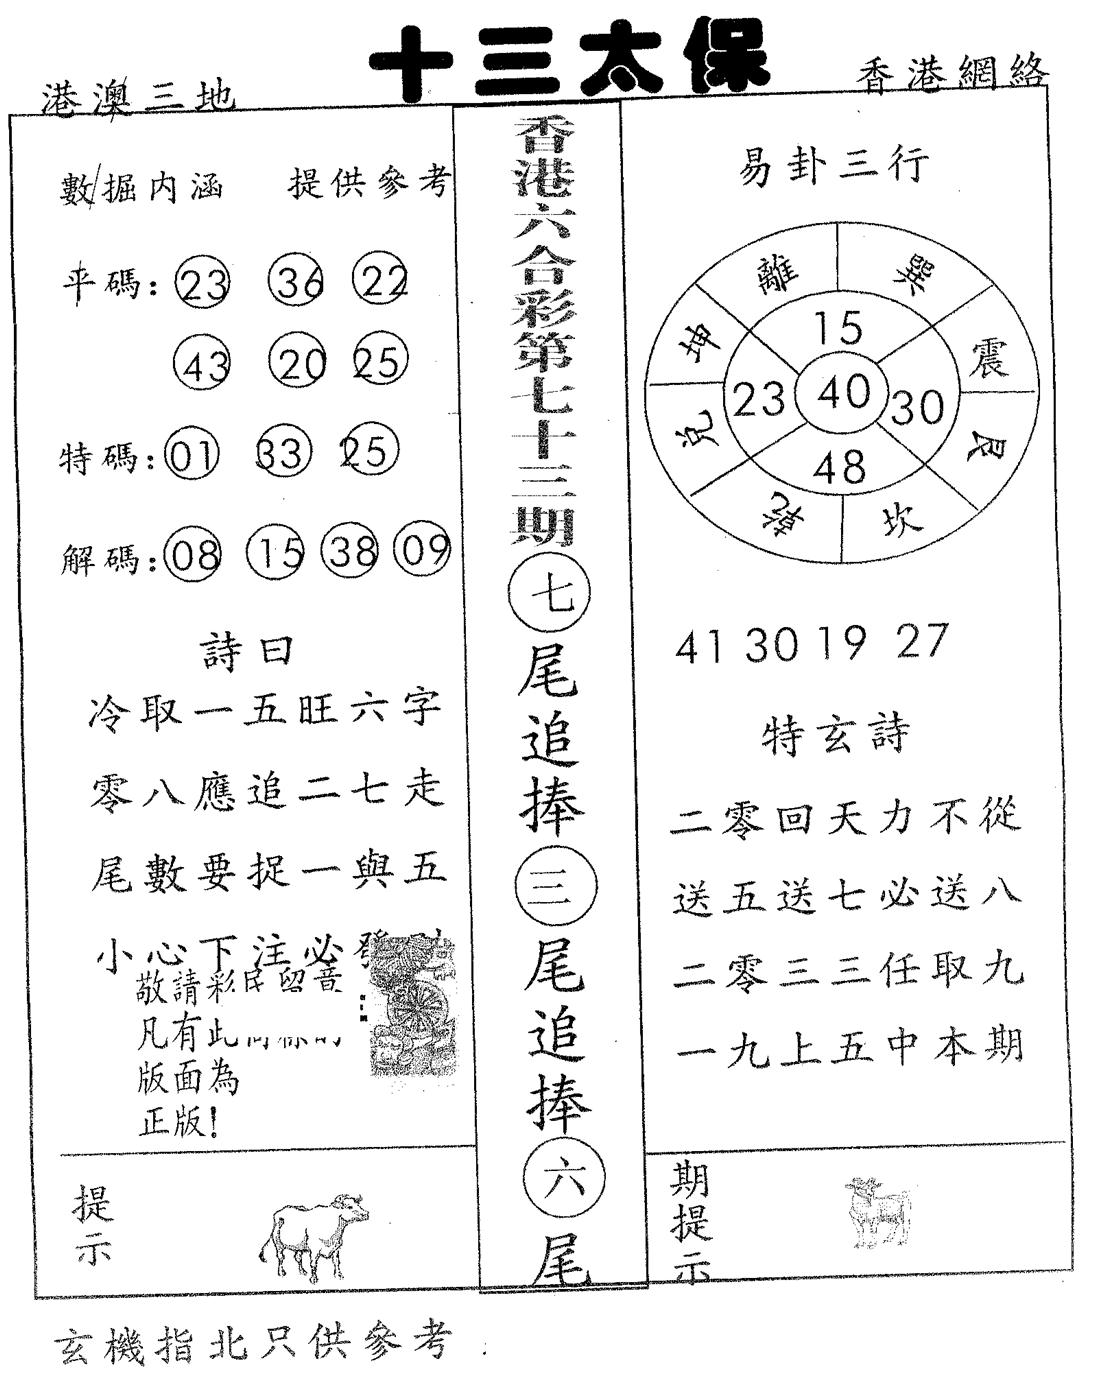 十三太保
港澳三地
香港網絡
數掘内涵 提供參考
平碼：23 36 22
43 20 25
特碼：01 33 25
解碼：08 15 38 09
詩曰
冷取一五旺六字
零八應追二七走
尾數要捉一與五
小心下注必發
敬請彩民留意
凡有此
版面為
正版！
提示
香港六合彩第七十三期
七尾追捧三尾追捧六尾
易卦三行
離 巽
坤 15 震
23 40 30
兌 48 艮
乾 坎
41 30 19 27
特玄詩
二零回天力不從
送五送七必送八
二零三三任取九
一九上五中本期
期提示
玄機指北只供參考